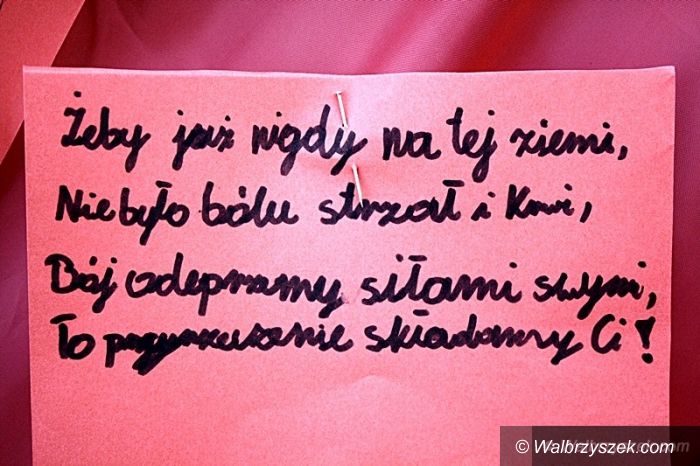 Żeby już nigdy na tej ziemi,
Nie było bólu strzał i Krwi,
Bój odeprzemy siłami swymi,
To przyrzeczenie składamy Ci!
© Walbrzyszek.com